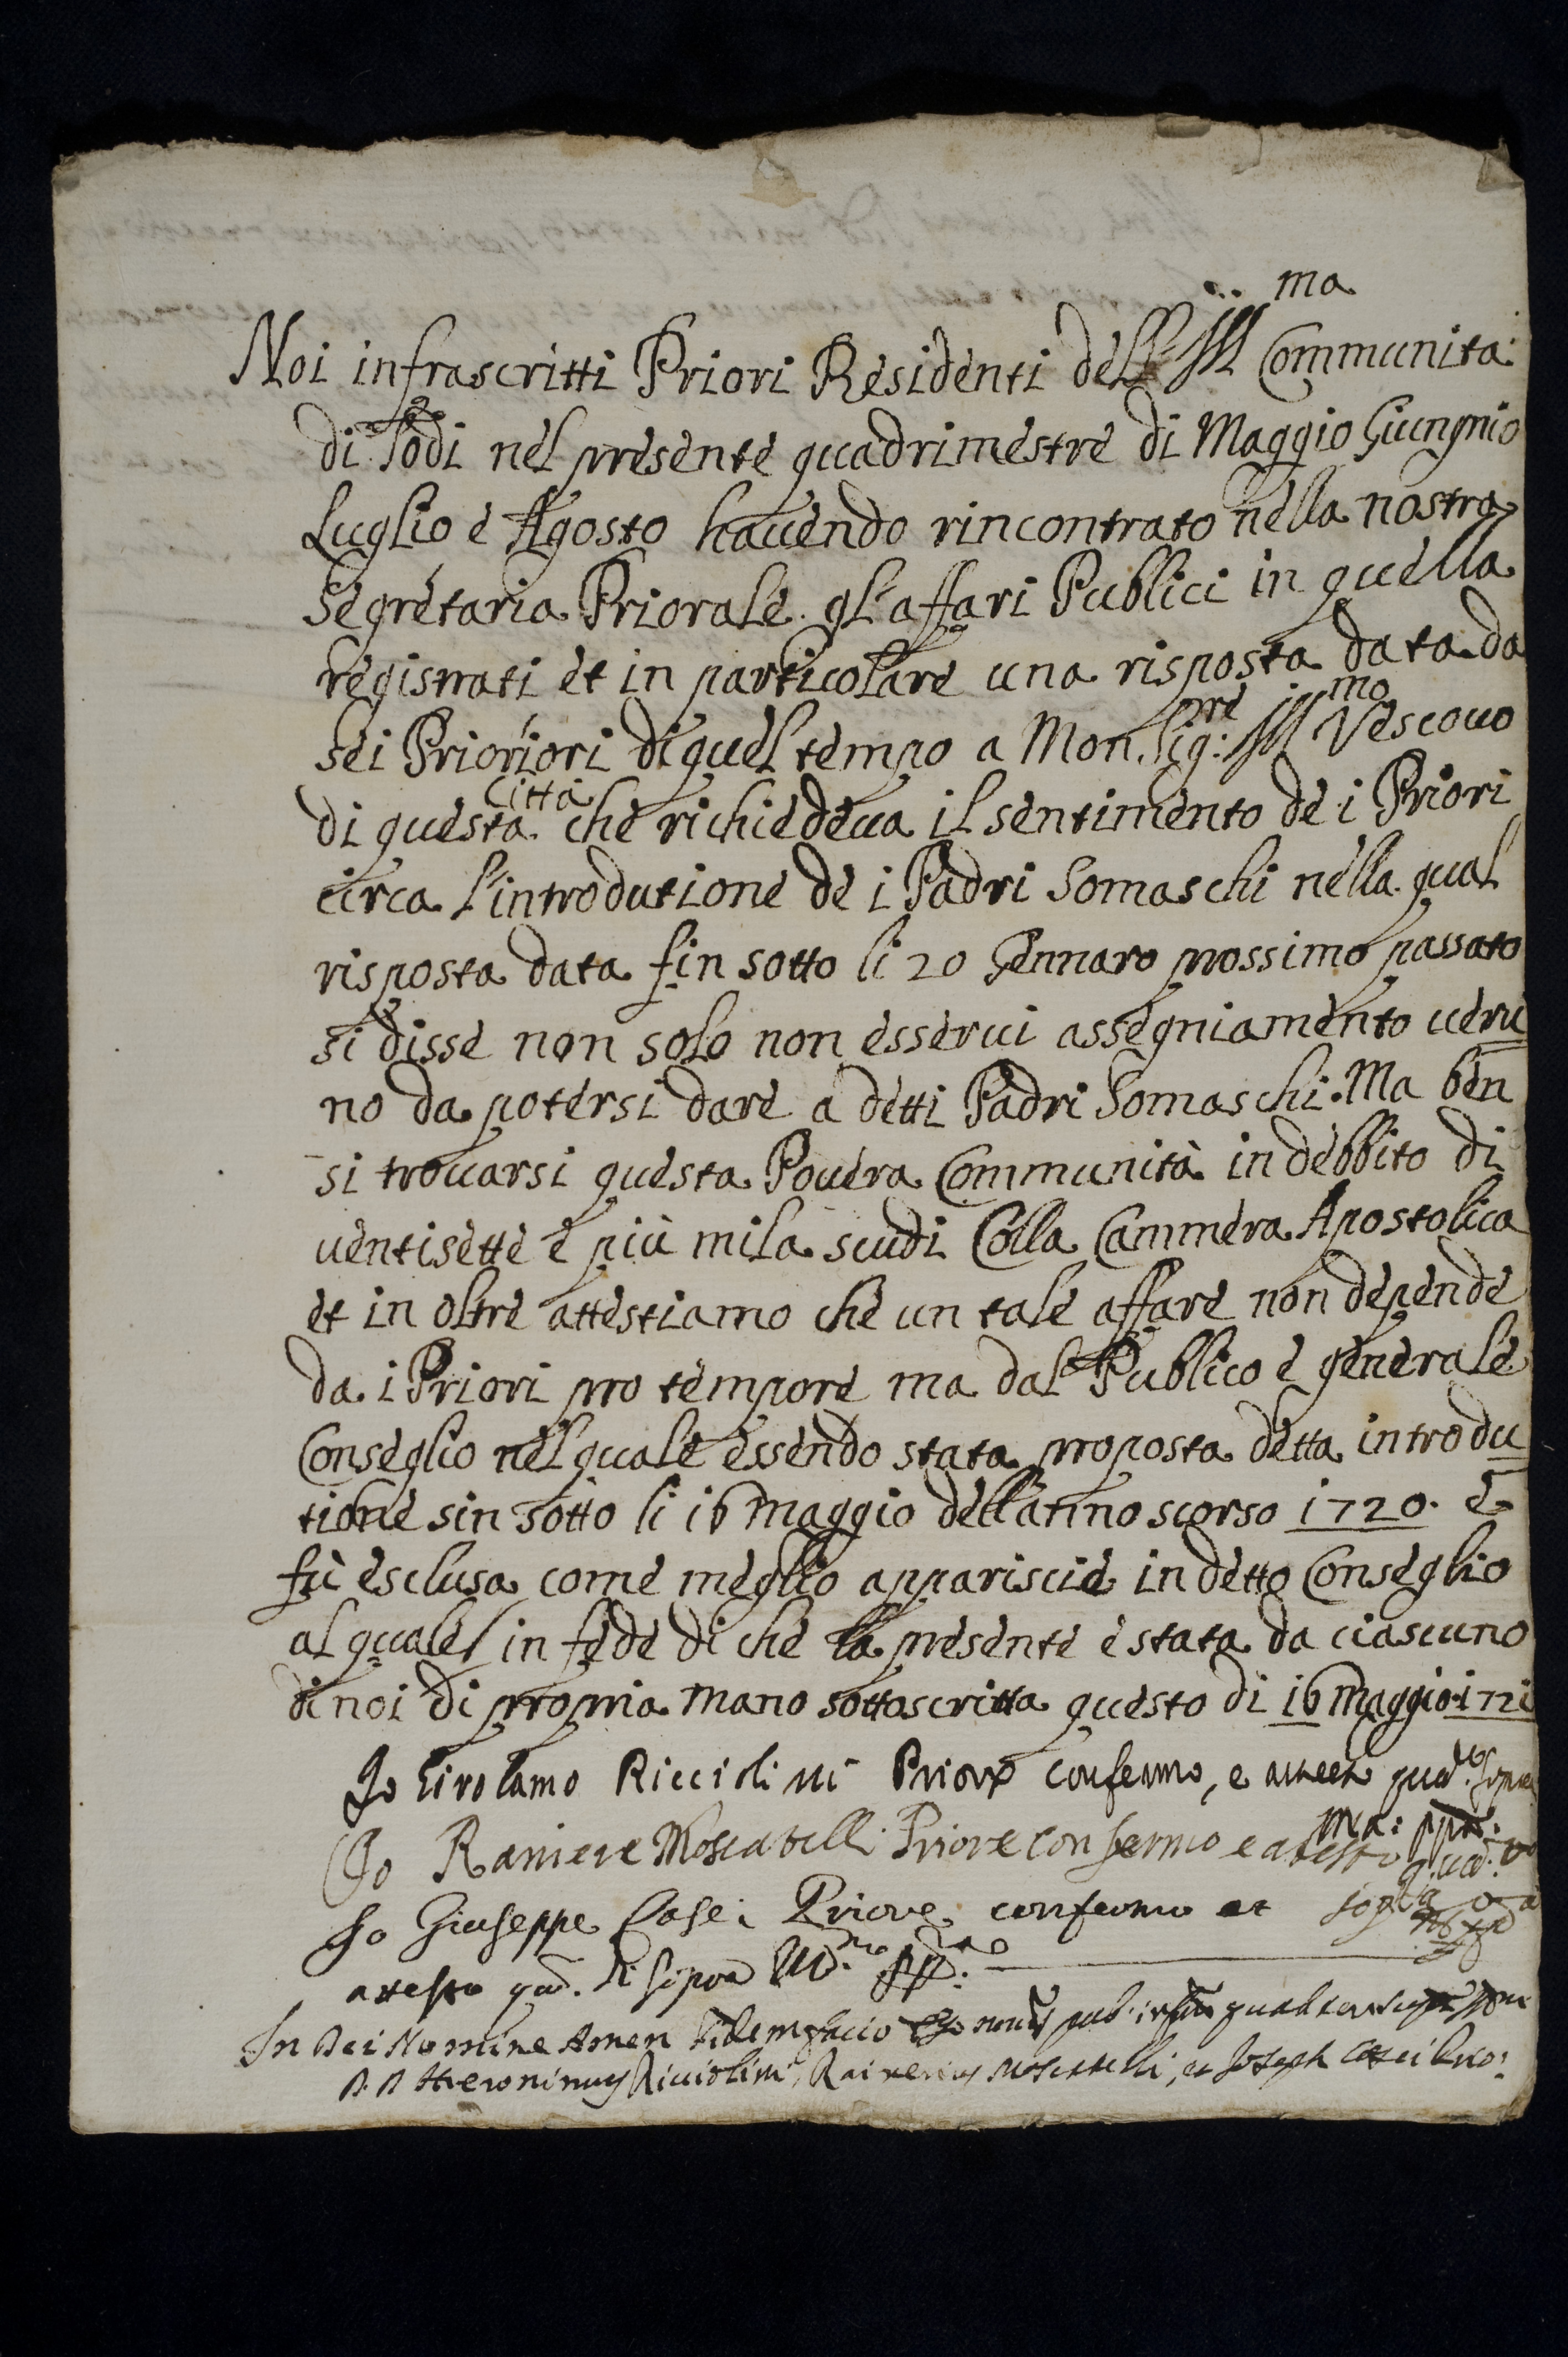 Noi infrascritti Priori Residenti dell' Ill.ma Communita
di Todi nel presente quadrimestre di Maggio Giungnio
Luglio e Agosto hauendo rincontrato nella nostra
Segretaria Priorale gl'affari Publici in quella
registrati et in particolare una risposta data da
sei Prioriori di quel tempo a Mon.sig:re Ill.mo Vescouo
di questa Città che richiedeua il sentimento de i Priori
circa l'introdutione de i Padri Somaschi nella qual
risposta data fin sotto li 20 Gennaro prossimo passato
si disse non solo non esserui assegniamento ueru
no da potersi dare a detti Padri Somaschi. Ma ben
si trouarsi questa Pouera Communità in debbito di
uentisette e più mila scudi Colla Cammera Apostolica
et in oltre attestiamo che un tale affare non depende
da i Priori pro tempore ma dal Publico e generale
Conseglio nel quale essendo stata proposta detta introdu
tione sin sotto li 16 Maggio dell'anno scorso 1720. e
fù esclusa come meglio appariscie in detto Conseglio
al quale / in fede di che la presente è stata da ciascuno
di noi di propria mano sottoscritta questo di 16 Maggio 1721
Io Girolamo Ricciolini Priore confermo, e attesto quā.to sopra
ma: pp.a:
Io Raniere Moscatelli Priore confermo e atesto quā.to
sop.a
Io Giuseppe Casei Priore confermo et
attesto quā. di sopra
In Dei Nomine Amen fidem facio Ego not.s pub.
D. D. Hieronimus Ricciolini, Rainerius Moscatelli, et Joseph